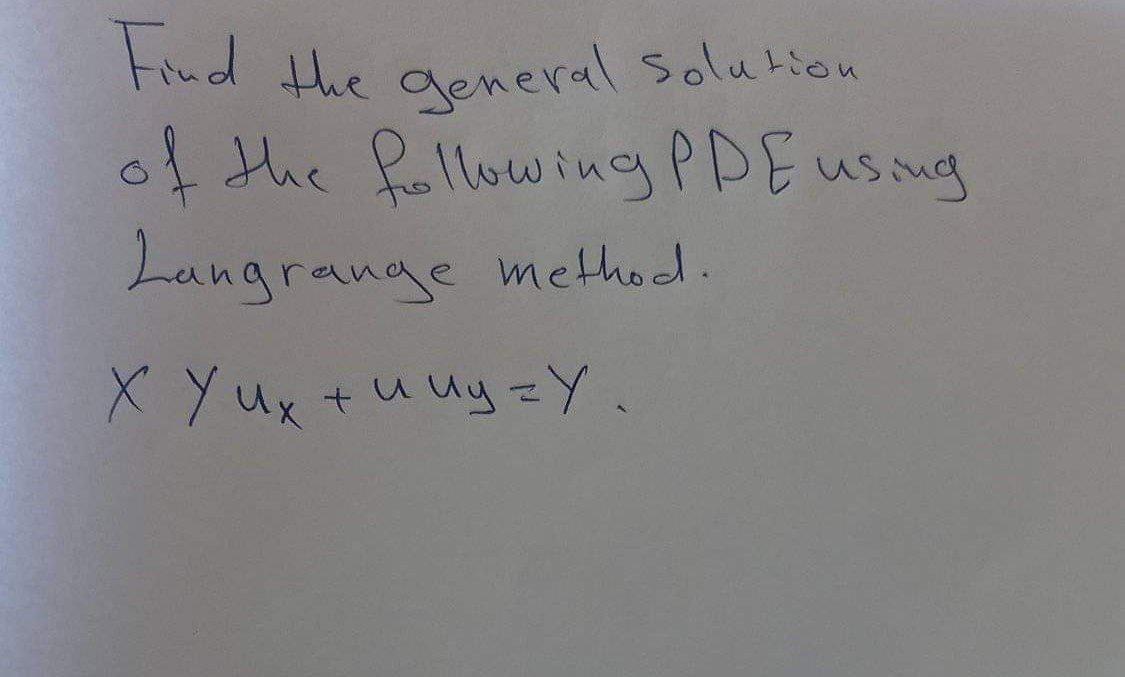 Find the general solution
of the following PDE using
Langrange method.
X Y uₓ + u u_y = Y.